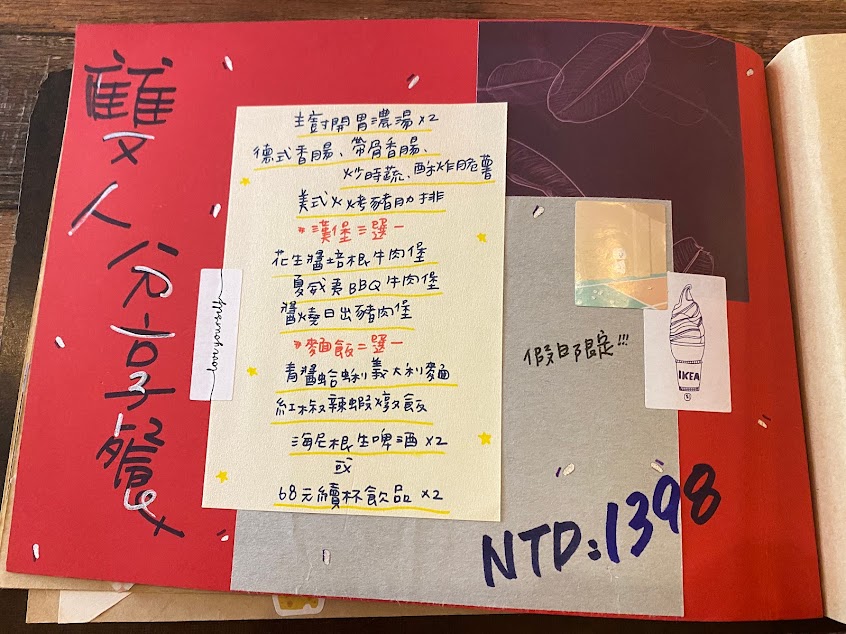 雙人分享餐
主廚開胃濃湯x2
德式香腸、帶骨香腸、
炒時蔬、酥炸脆薯
美式火烤豬肋排
*漢堡三選一
花生醬培根牛肉堡
夏威夷BBQ牛肉堡
醬燒日出豬肉堡
*麵飯二選一
青醬蛤蜊義大利麵
紅椒辣蝦燉飯
海尼根生啤酒x2
或
68元續杯飲品x2
love yourself
假日限定!!!
IKEA
NTD:1398